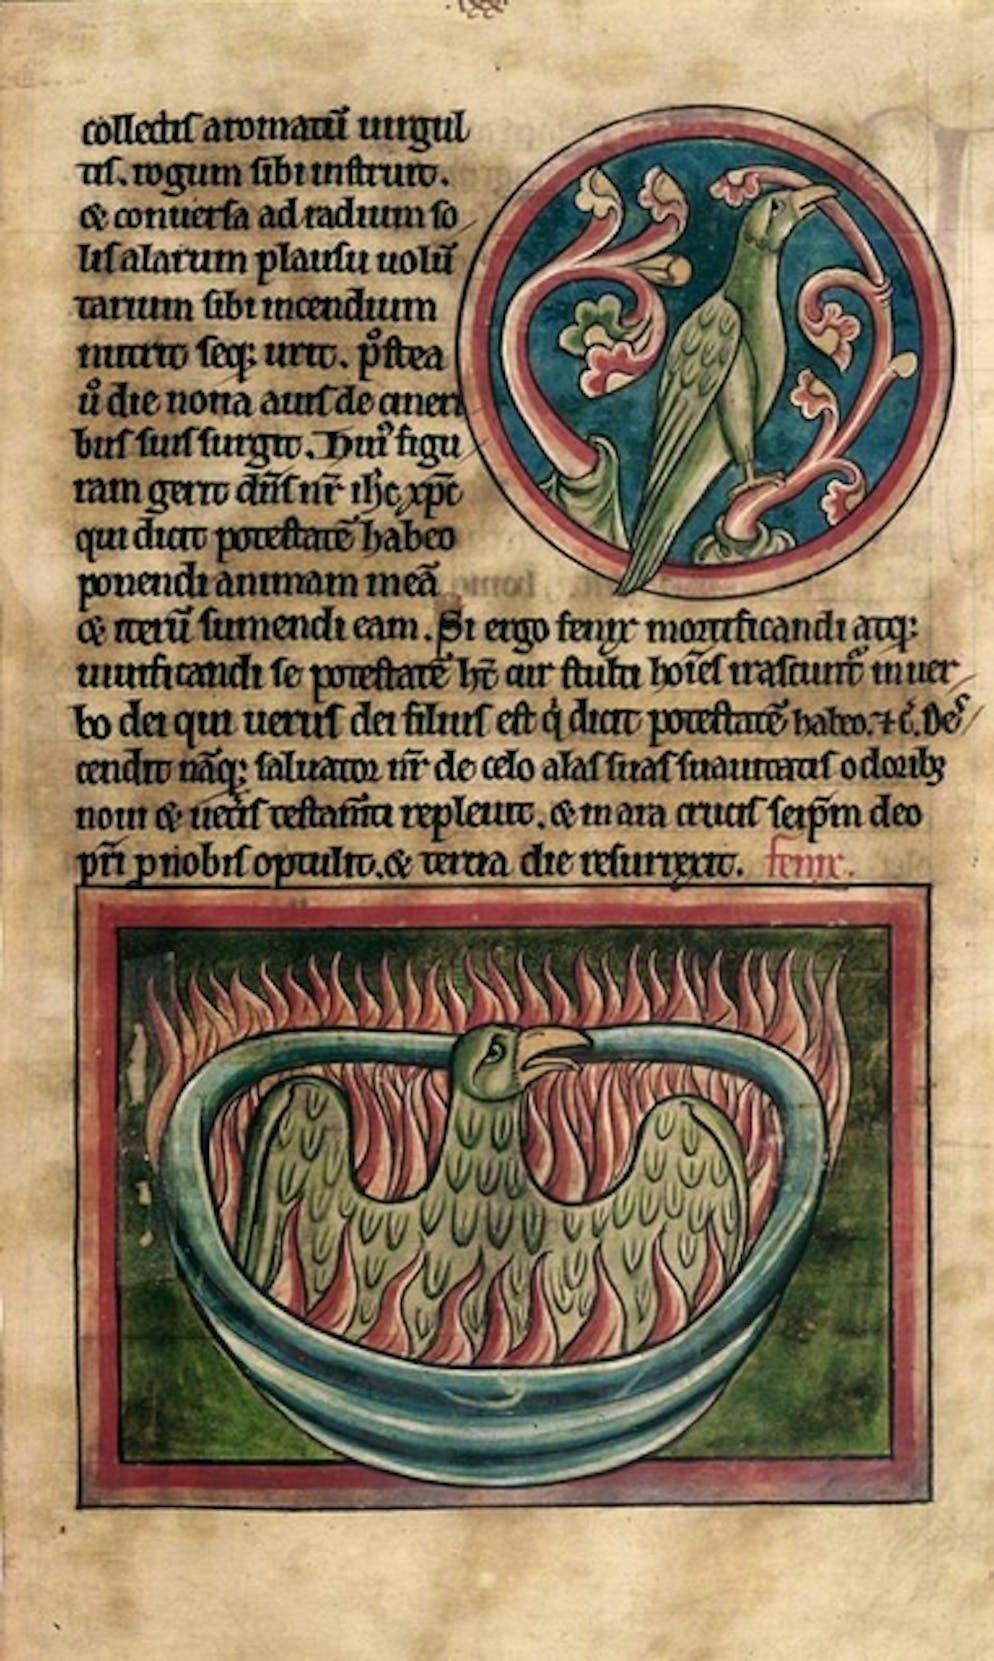 collectis aromatū uirgul
tis. rogum sibi instruit.
& conuersa ad radium so
lis alarum plausu uolū
tarium sibi incendium
nutrit seq; urit. p᷒ostea
u᷒o die nona auis de cineri
bus suis surgit. Hui᷒ figu
ram gerit dn̄s nr̄ ih̄c xp̄c
qui dicit potestatē habeo
ponendi animam meā
& iterū sumendi eam. Si ergo fenix mortificandi atq;
uiuificandi se potestatē ht̄ cur stulti hoīes irascunt᷑ in uer
bo dei qui uerus dei filius est q᷒i dicit potestatē habeo. ⁊ c᷒. Des
cendit nāq; saluator nr̄ de celo alas suas suauitatis odorib;
noui & uet̄is testam̄ti repleuit. & in ara crucis seip̄m deo
pr̄i p nobis optulit. & tercia die resurrexit. fenix.